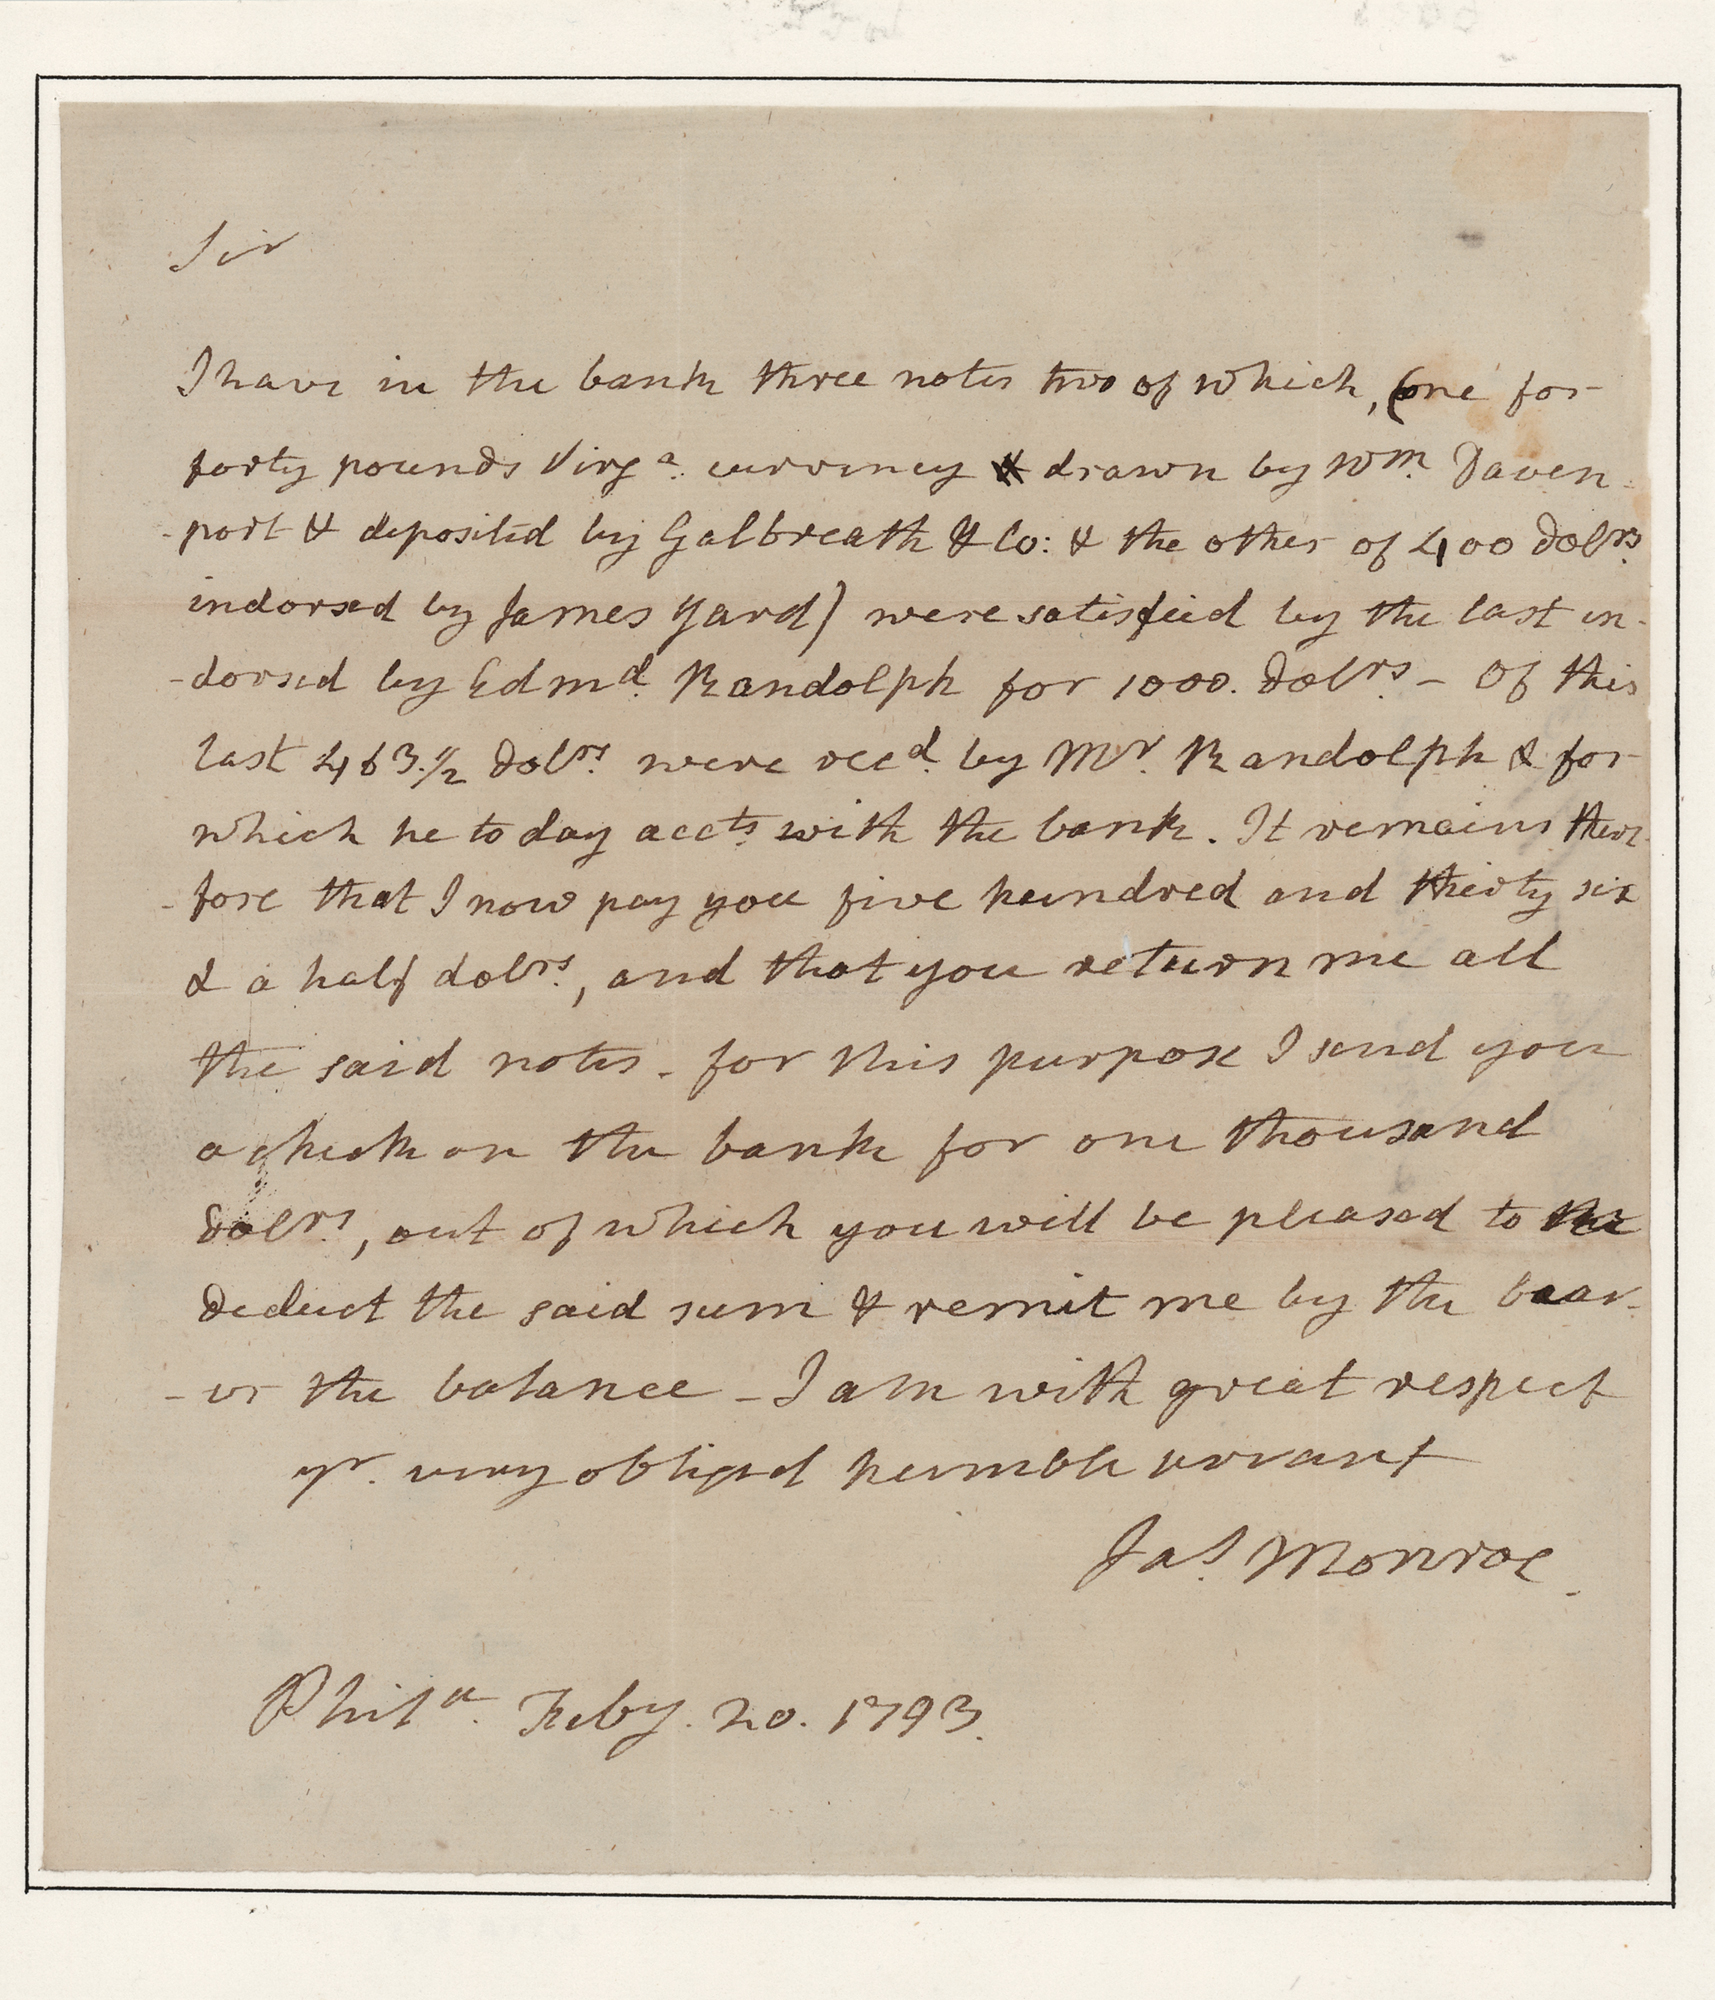 Sir
I have in the bank three notes two of which, (one for
forty pounds Virga. currency & drawn by Wm. Daven
-port & deposited by Galbreath & Co: & the other of 400 dolrs
indorsed by James Yard) were satisfied by the last in-
-dorsed by Edmd. Randolph for 1000. dolrs. - Of this
last 463.1/2 dolrs. were recd. by Mr. Randolph & for
which he to day accts. with the bank. It remains there
-fore that I now pay you five hundred and thirty six
& a half dolrs., and that you return me all
the said notes - for this purpose I send you
a check on the bank for one thousand
dolrs., out of which you will be pleased to
deduct the said sum & remit me by the bear-
-er the balance - I am with great respect
yr. very obliged humble servant
Jas. Monroe.
Phila. Feby. 20. 1793.